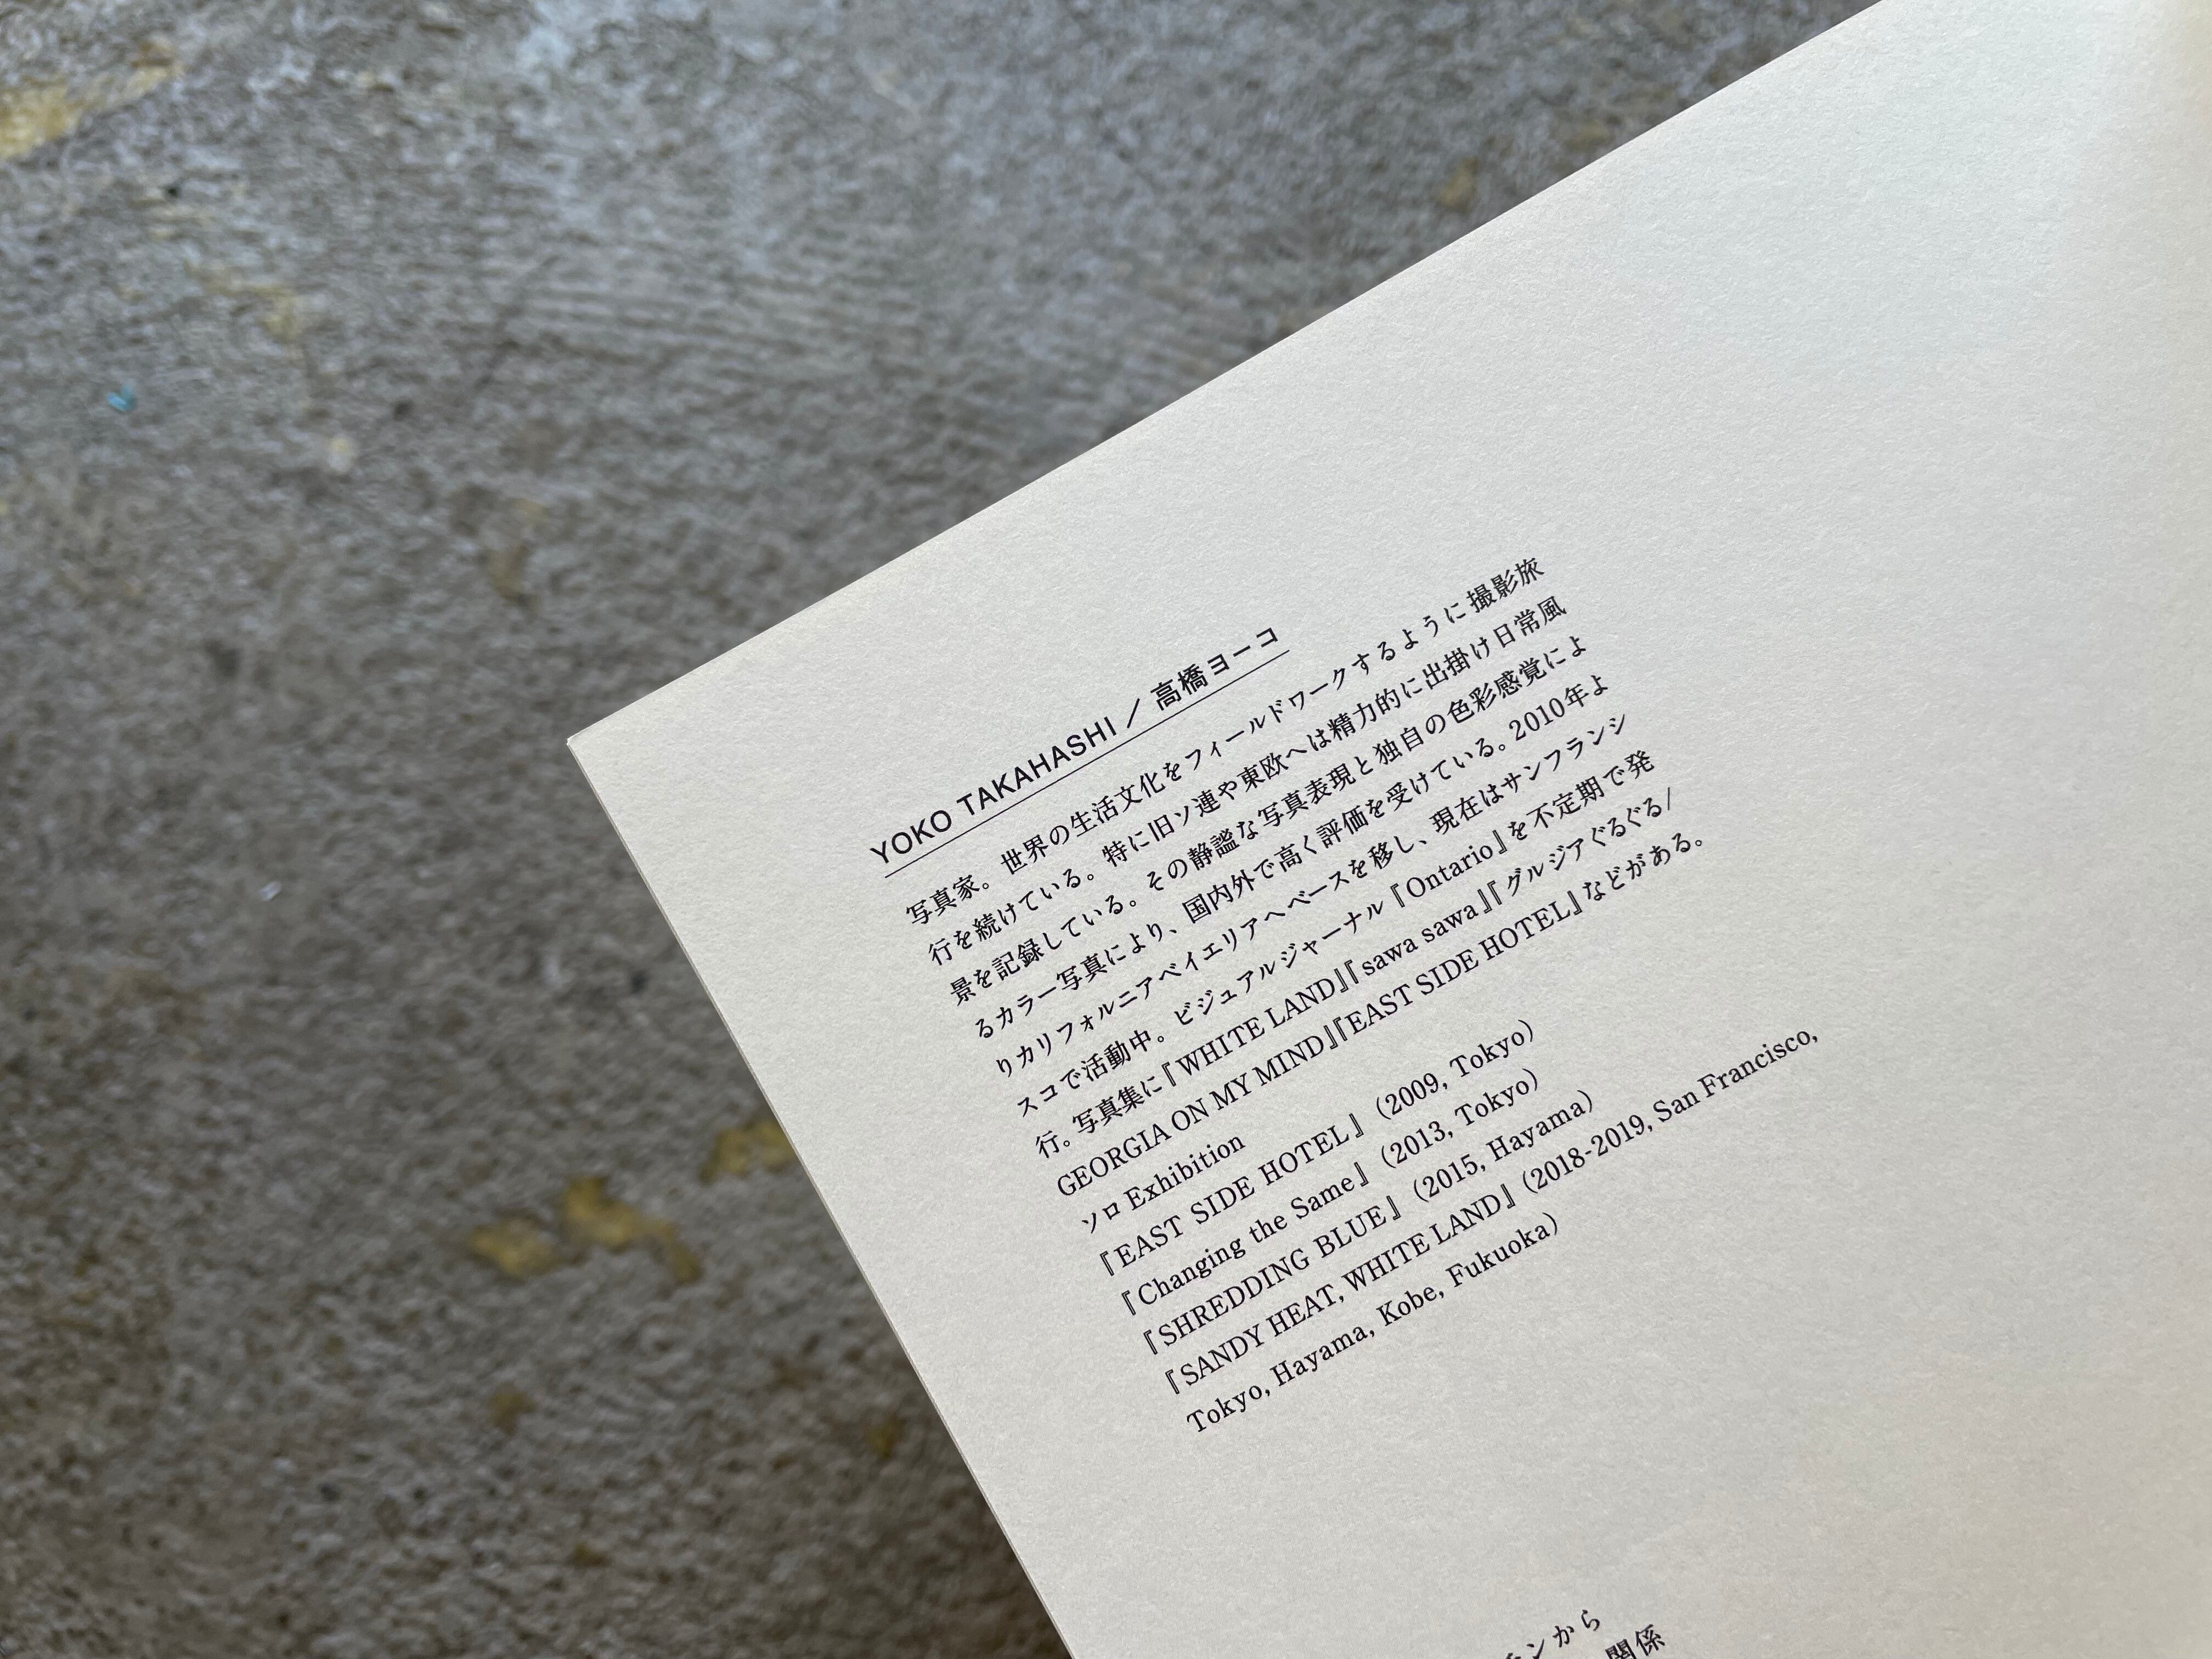 YOKO TAKAHASHI / 高橋ヨーコ
写真家。世界の生活文化をフィールドワークするように撮影旅
行を続けている。特に旧ソ連や東欧へは精力的に出掛け日常風
景を記録している。その静謐な写真表現と独自の色彩感覚によ
るカラー写真により、国内外で高く評価を受けている。2010年よ
りカリフォルニアベイエリアへベースを移し、現在はサンフランシ
スコで活動中。ビジュアルジャーナル『Ontario』を不定期で発
行。写真集に『WHITE LAND』『sawa sawa』『グルジアぐるぐる/
GEORGIA ON MY MIND』『EAST SIDE HOTEL』などがある。
ソロ Exhibition
『EAST SIDE HOTEL』（2009, Tokyo）
『Changing the Same』（2013, Tokyo）
『SHREDDING BLUE』（2015, Hayama）
『SANDY HEAT, WHITE LAND』（2018-2019, San Francisco,
Tokyo, Hayama, Kobe, Fukuoka）
ンから
関係